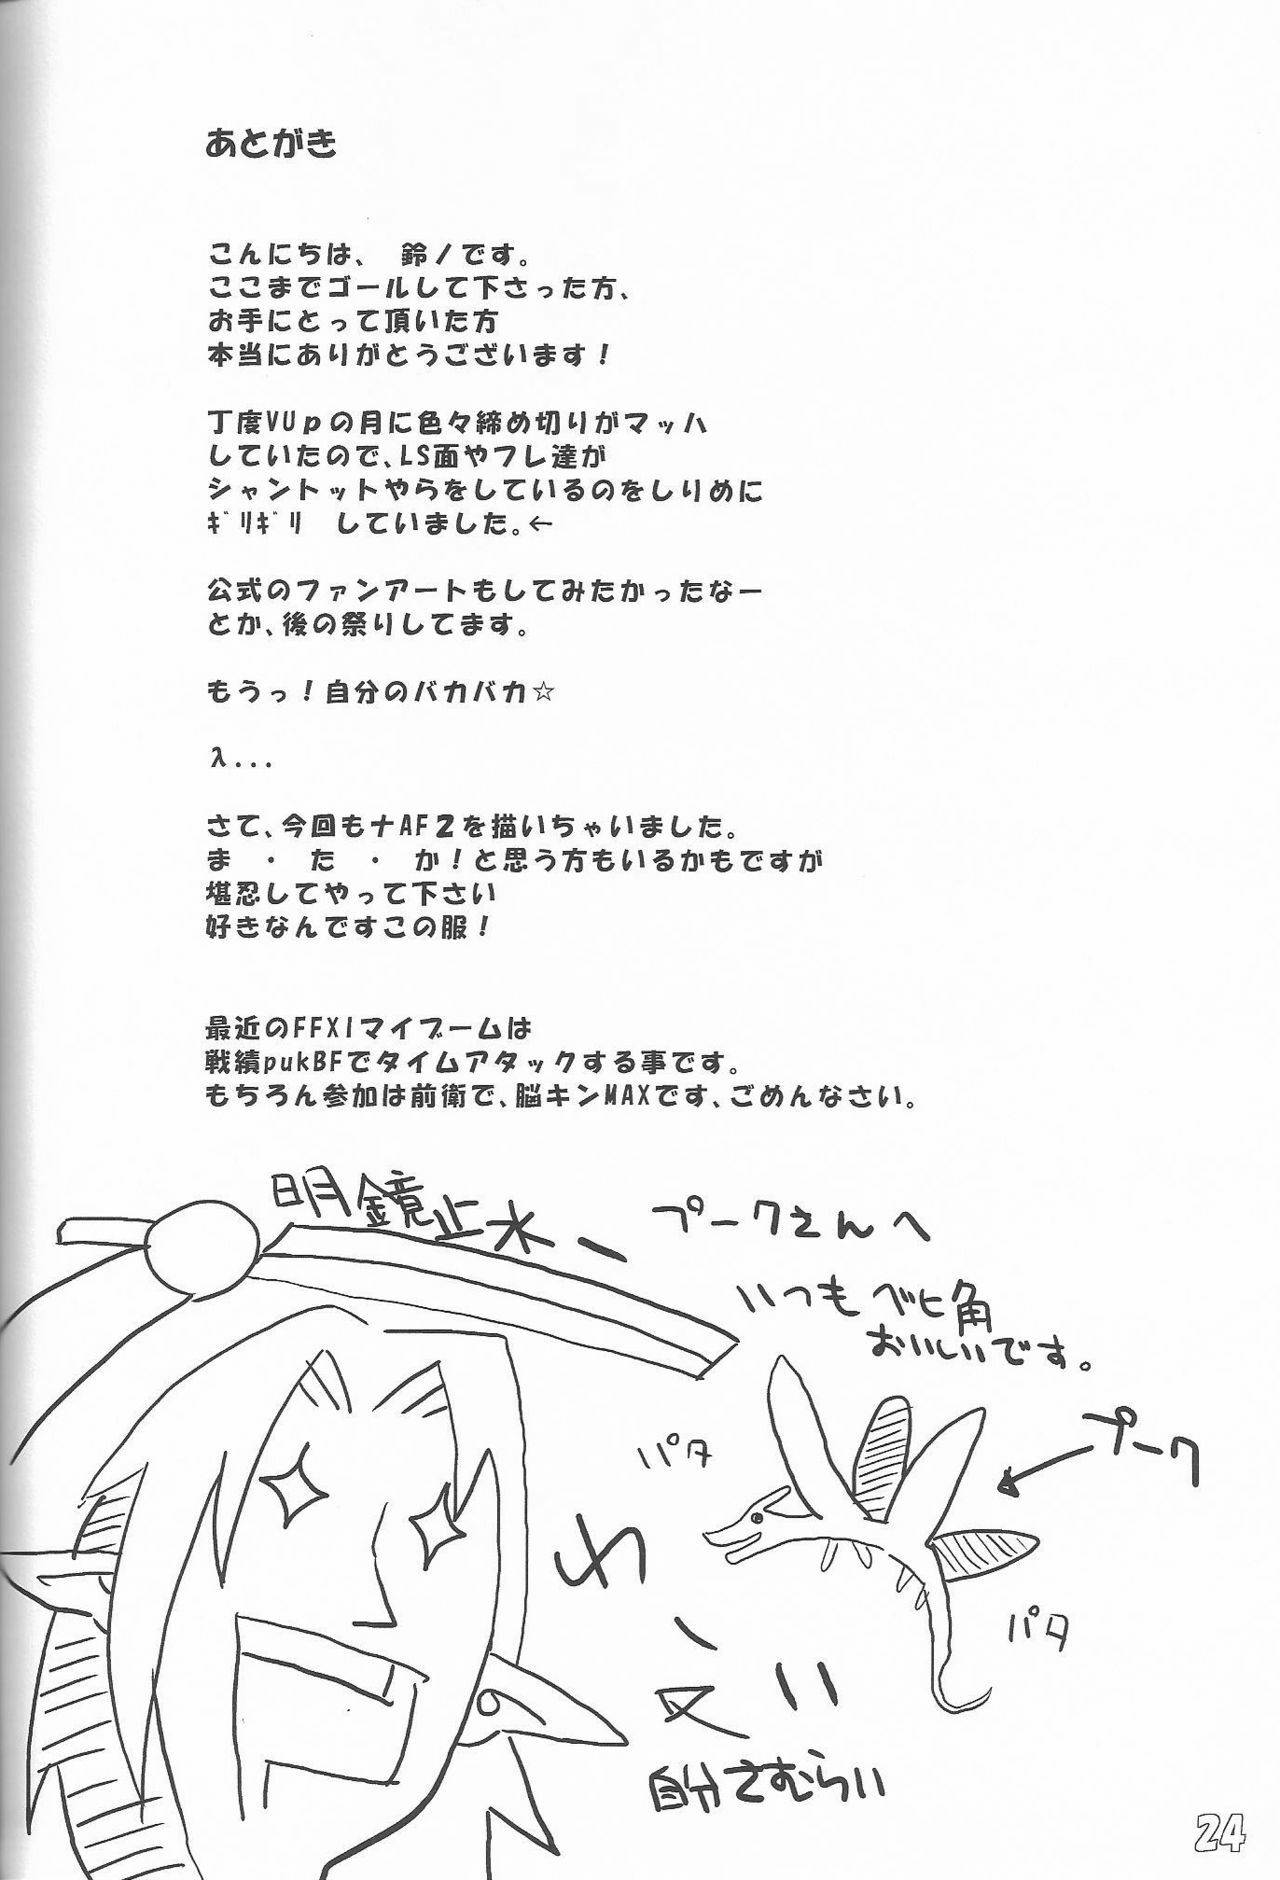 あとがき
こんにちは、 鈴ノです。
ここまでゴールして下さった方、
お手にとって頂いた方
本当にありがとうございます！
丁度VUpの月に色々締め切りがマッハ
していたので、LS面やフレ達が
シャントットやらをしているのをしりめに
ｷﾞﾘｷﾞﾘ していました。←
公式のファンアートもしてみたかったなー
とか、後の祭りしてます。
もうっ！自分のバカバカ☆
λ...
さて、今回もナAF2を描いちゃいました。
ま ・ た ・ か！と思う方もいるかもですが
堪忍してやって下さい
好きなんですこの服！
最近のFFXIマイブームは
戦績pukBFでタイムアタックする事です。
もちろん参加は前衛で、脳キンMAXです、ごめんなさい。
明鏡止水ー
プークさんへ
いつもベヒ角
おいしいです。
パタ
プーク
パタ
自分さむらい
24